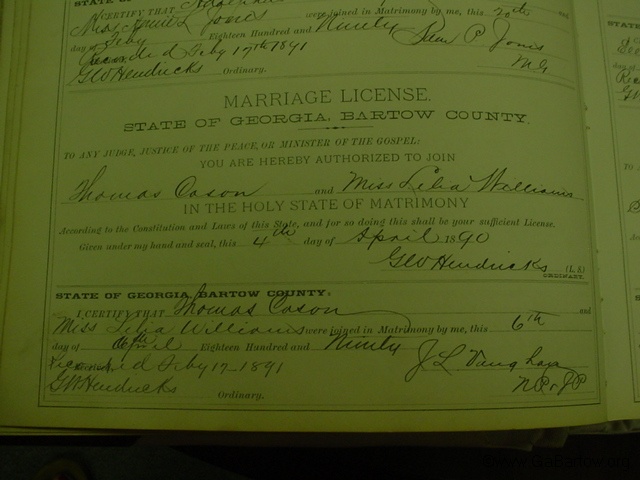 STATE OF
I CERTIFY THAT
Miss L Jones were joined in Matrimony by me, this 20th and
day of Feby Eighteen Hundred and Ninety Sam P. Jones
Recorded Feby 17th 1891 M.G
GW Hendricks Ordinary.
MARRIAGE LICENSE.
STATE OF GEORGIA, BARTOW COUNTY.
TO ANY JUDGE, JUSTICE OF THE PEACE, OR MINISTER OF THE GOSPEL:
YOU ARE HEREBY AUTHORIZED TO JOIN
Thomas Cason and Miss Lelia Williams
IN THE HOLY STATE OF MATRIMONY
According to the Constitution and Laws of this State, and for so doing this shall be your sufficient License.
Given under my hand and seal, this 4th day of April 1890
GW Hendricks (L. S.)
ORDINARY.
STATE OF GEORGIA, BARTOW COUNTY:
I CERTIFY THAT Thomas Cason and
Miss Lelia Williams were joined in Matrimony by me, this 6th
day of April Eighteen Hundred and Ninety J L
Recorded Feby 17- 1891 N.P. & J.P
GW Hendricks Ordinary.